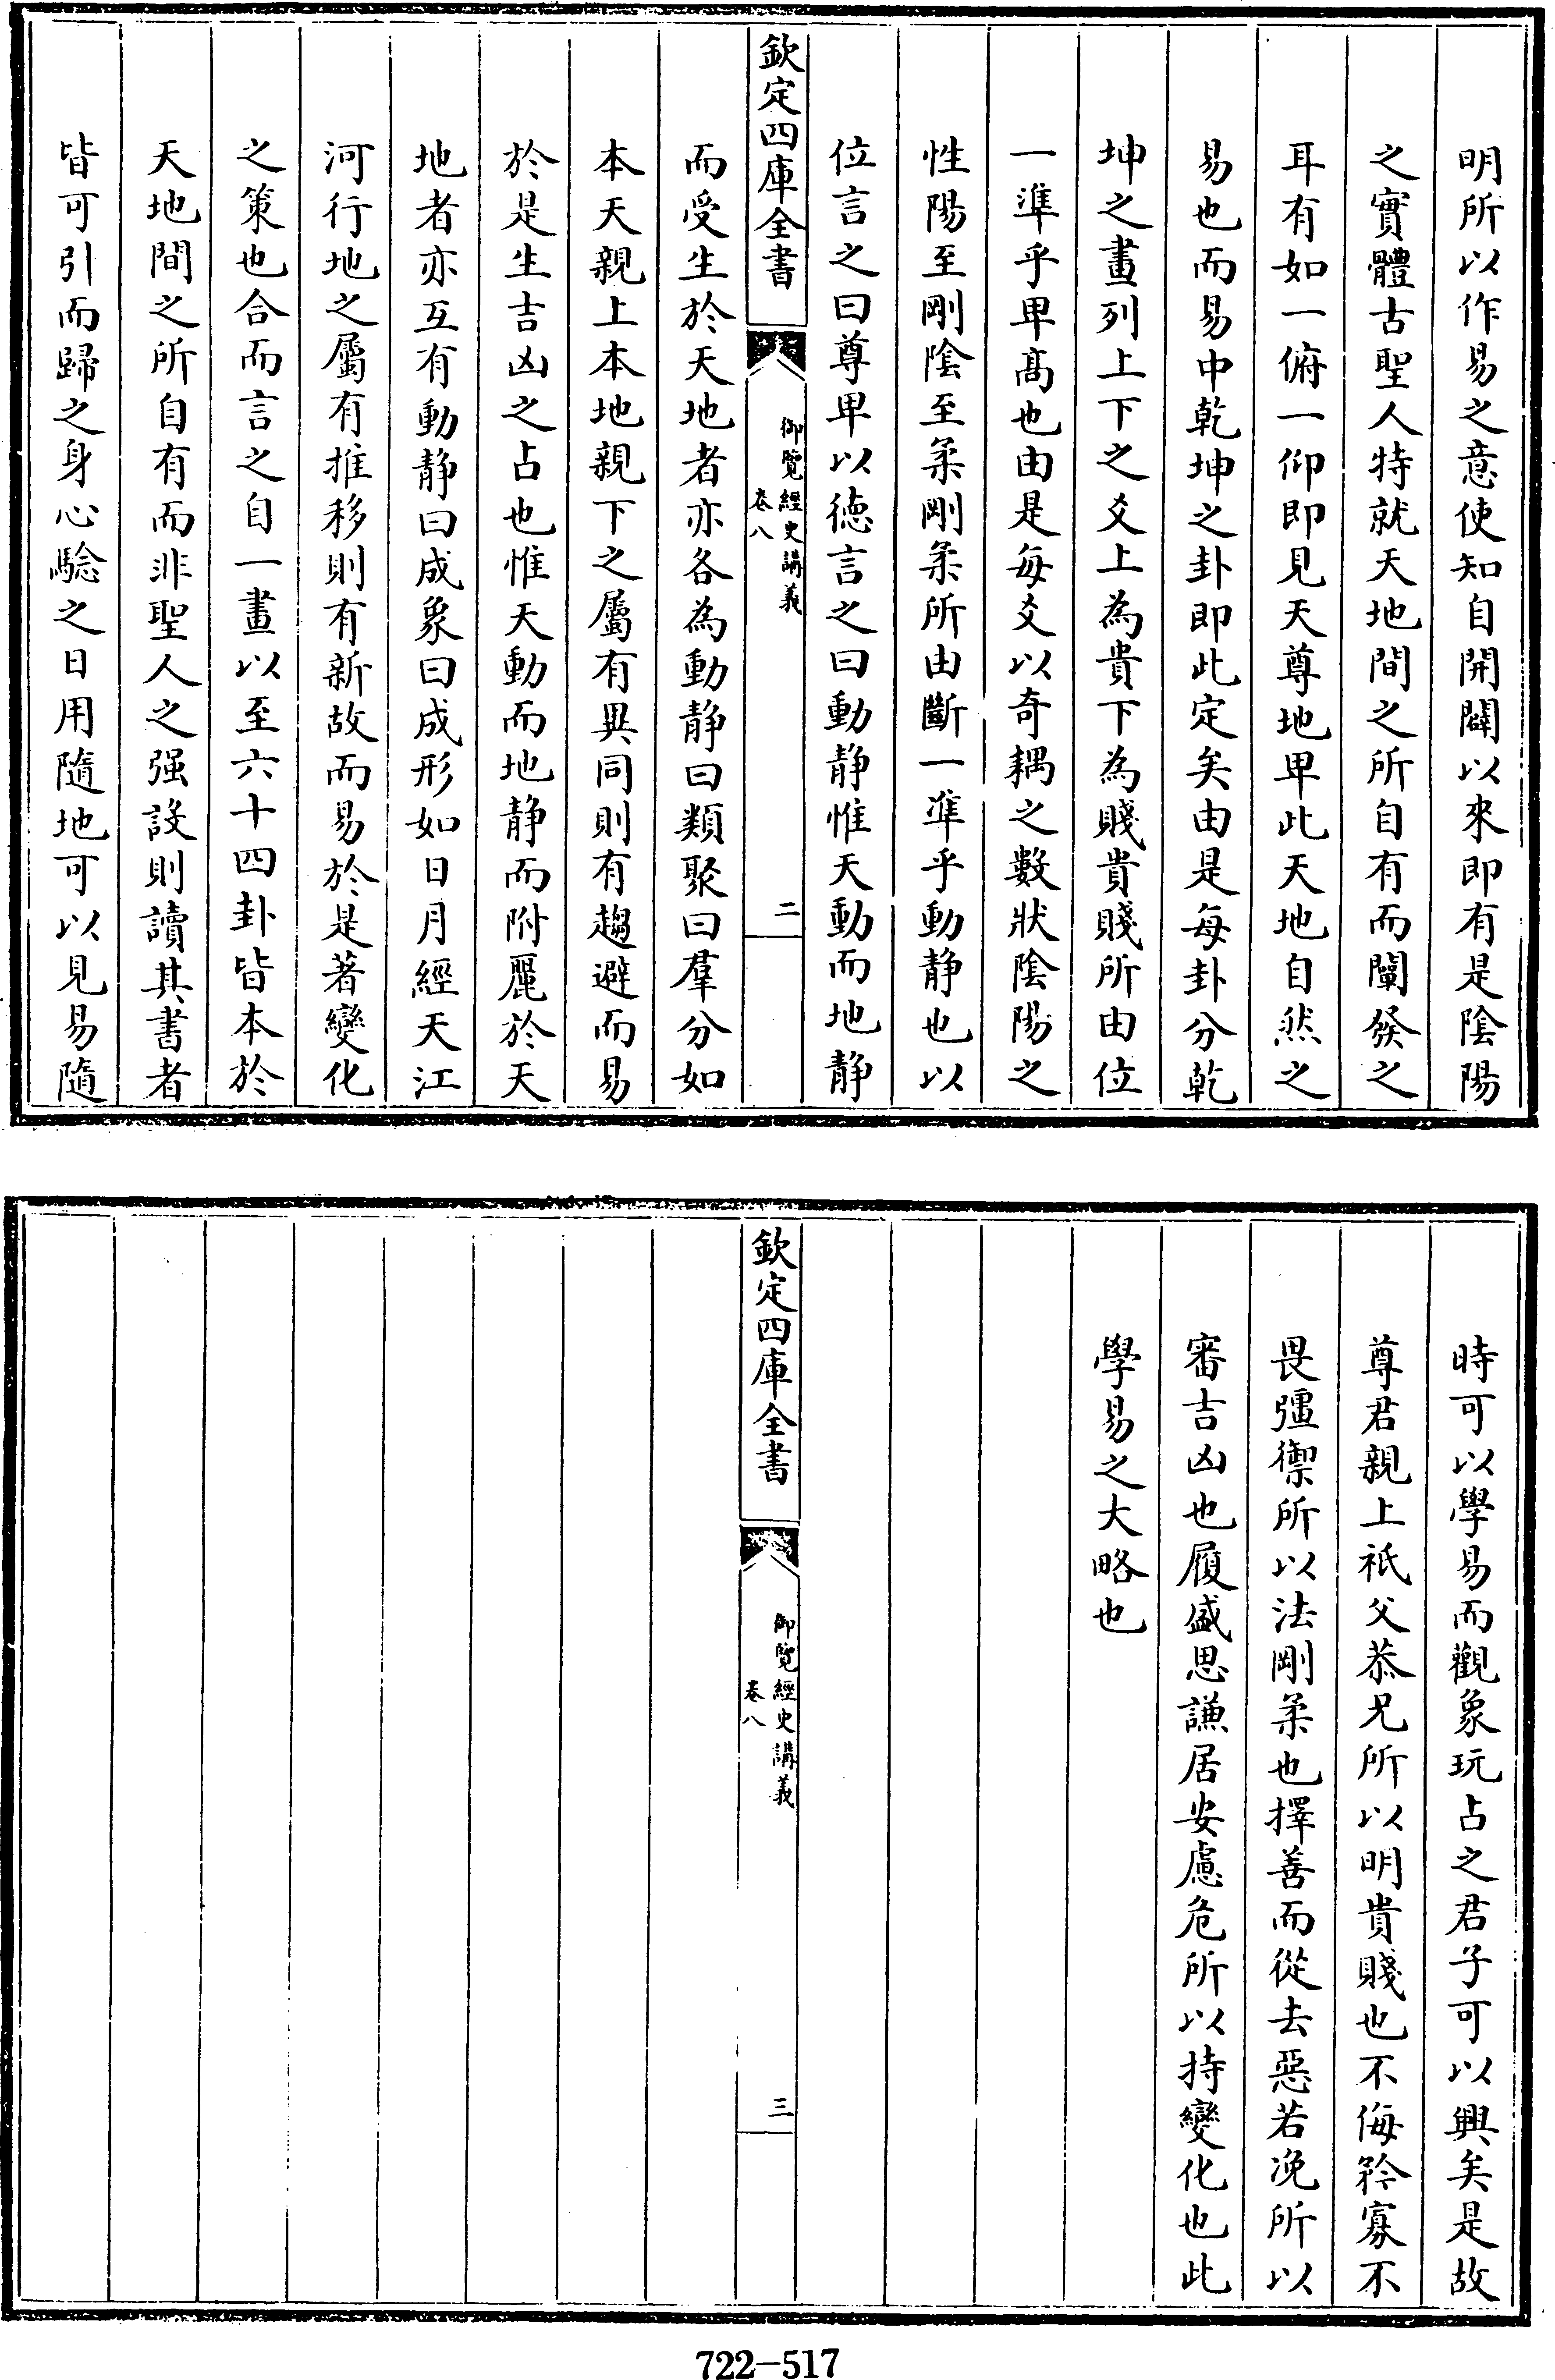 明所以作易之意使知自開闢以來即有是陰陽
之實體古聖人特就天地間之所自有而闡發之
耳有如一俯一仰即見天尊地卑此天地自然之
易也而易中乾坤之卦即此定矣由是每卦分乾
坤之畫列上下之爻上為貴下為賤貴賤所由位
一準乎卑髙也由是每爻以奇耦之數狀陰陽之
性陽至剛陰至柔剛柔所由斷一準乎動静也以
位言之曰尊卑以徳言之曰動静惟天動而地静
欽定四庫全書
御覽經史講義
卷八
二
而受生於天地者亦各為動静曰類聚曰羣分如
本天親上本地親下之屬有異同則有趨避而易
於是生吉凶之占也惟天動而地静而附麗於天
地者亦互有動静曰成象曰成形如日月經天江
河行地之屬有推移則有新故而易於是著變化
之策也合而言之自一畫以至六十四卦皆本於
天地間之所自有而非聖人之强設則讀其書者
皆可引而歸之身心驗之日用隨地可以見易隨
時可以學易而觀象玩占之君子可以興矣是故
尊君親上祇父恭兄所以明貴賤也不侮矜寡不
畏彊禦所以法剛柔也擇善而從去惡若凂所以
審吉凶也履盛思謙居安慮危所以持變化也此
學易之大略也
欽定四庫全書
御覽經史講義
卷八
三
722-517